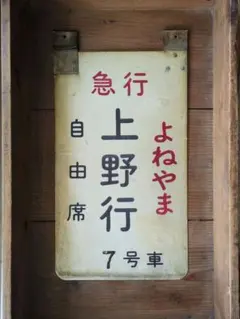 急行
よねやま
上野行
自由席
7号車